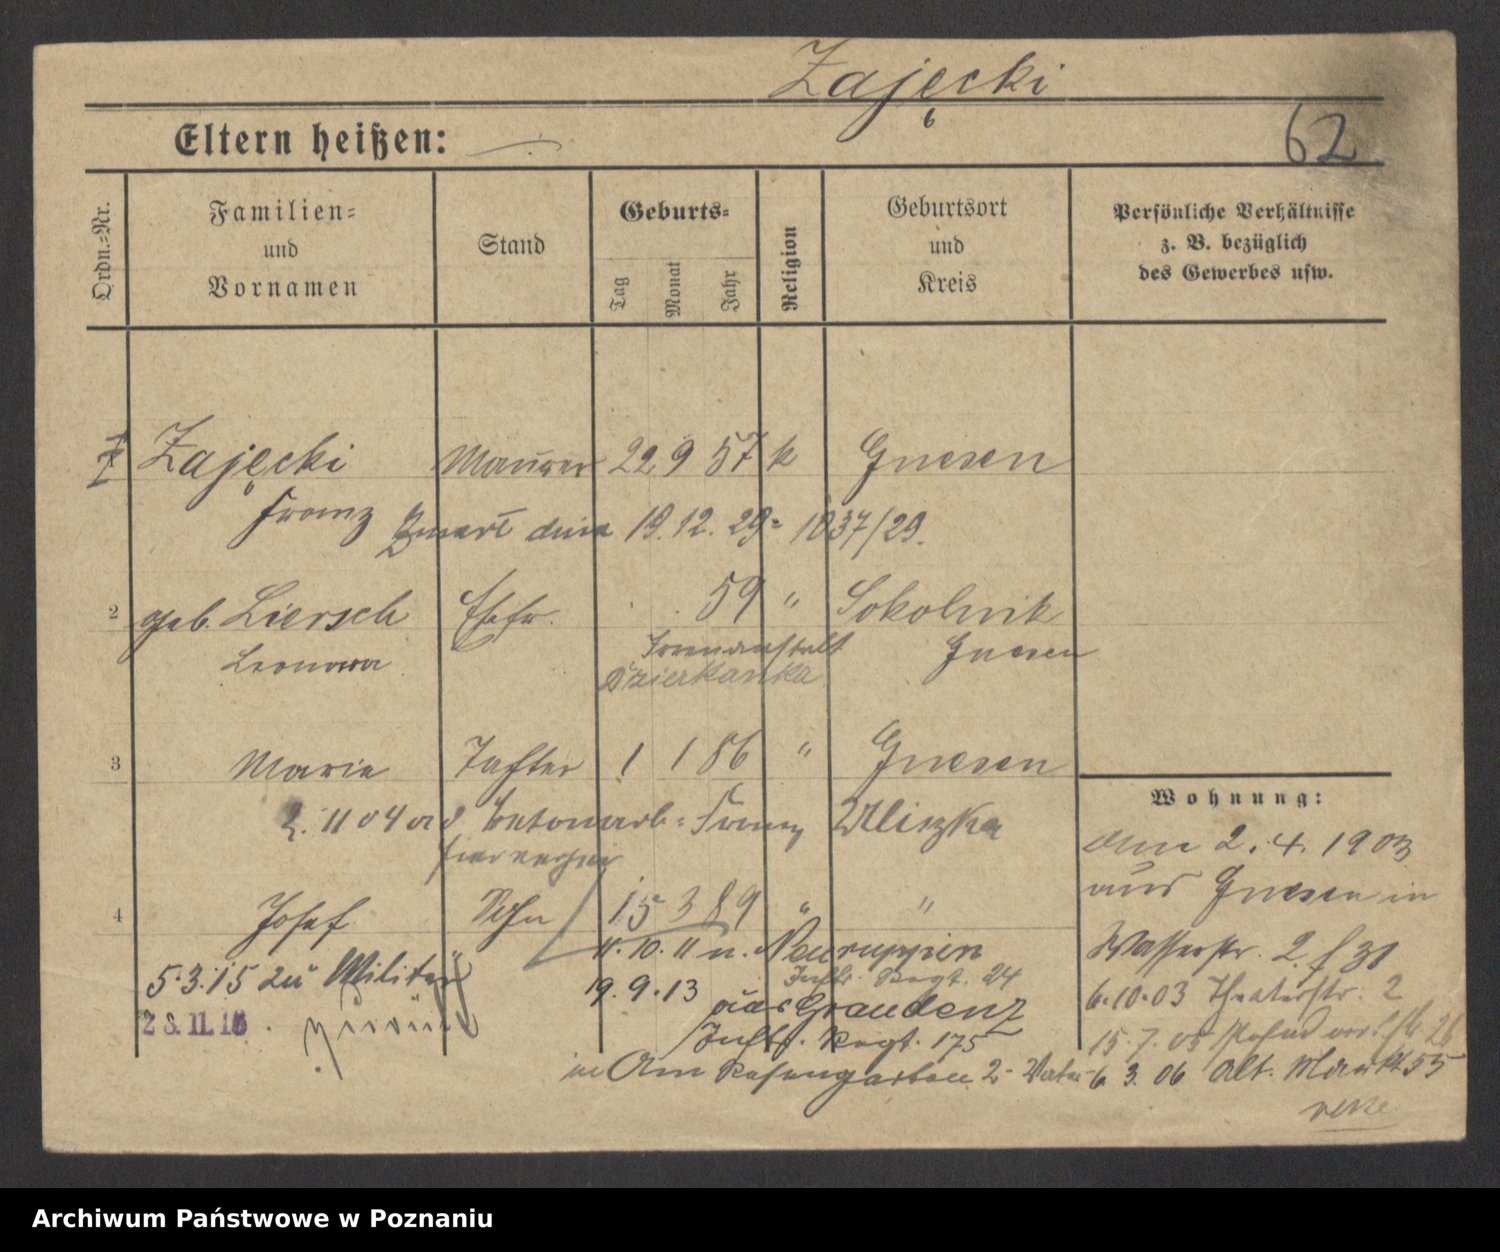 Zajęcki
Eltern heißen:
62
Ordn.=Nr.
Familien= und Vornamen
Stand
Geburts=
Tag
Monat
Jahr
Religion
Geburtsort und Kreis
Persönliche Verhältnisse
z. B. bezüglich
des Gewerbes usw.
Zajęcki Maurer 22 9 57 k Gnesen
Franz
Zmarł dnia 19.12.29= 1037/29.
2 geb. Liersch Ehefr. 59 " Sokolnik
Leonora Irrenanstalt Gnesen
Dziekanka
3 Marie Tochter 1 1 86 " Gnesen
2. 11 04 Betonarb= Franz Uliszka
hier
4 Josef Sohn 15 3 89 " "
11.10.11 n. Neuruppin
Inftr. Regt. 24
5.3.15 zu Militär 19.9.13 aus Graudenz
23.11.15. zurück Inftr. Regt. 175
in Am Rosengarten 2
Wohnung:
den 2.4.1903
aus Gnesen in
Wasserstr. 2
6.10.03 Theaterstr. 2
15.7.05
6.3.06 Alt. Markt 55
Archiwum Państwowe w Poznaniu